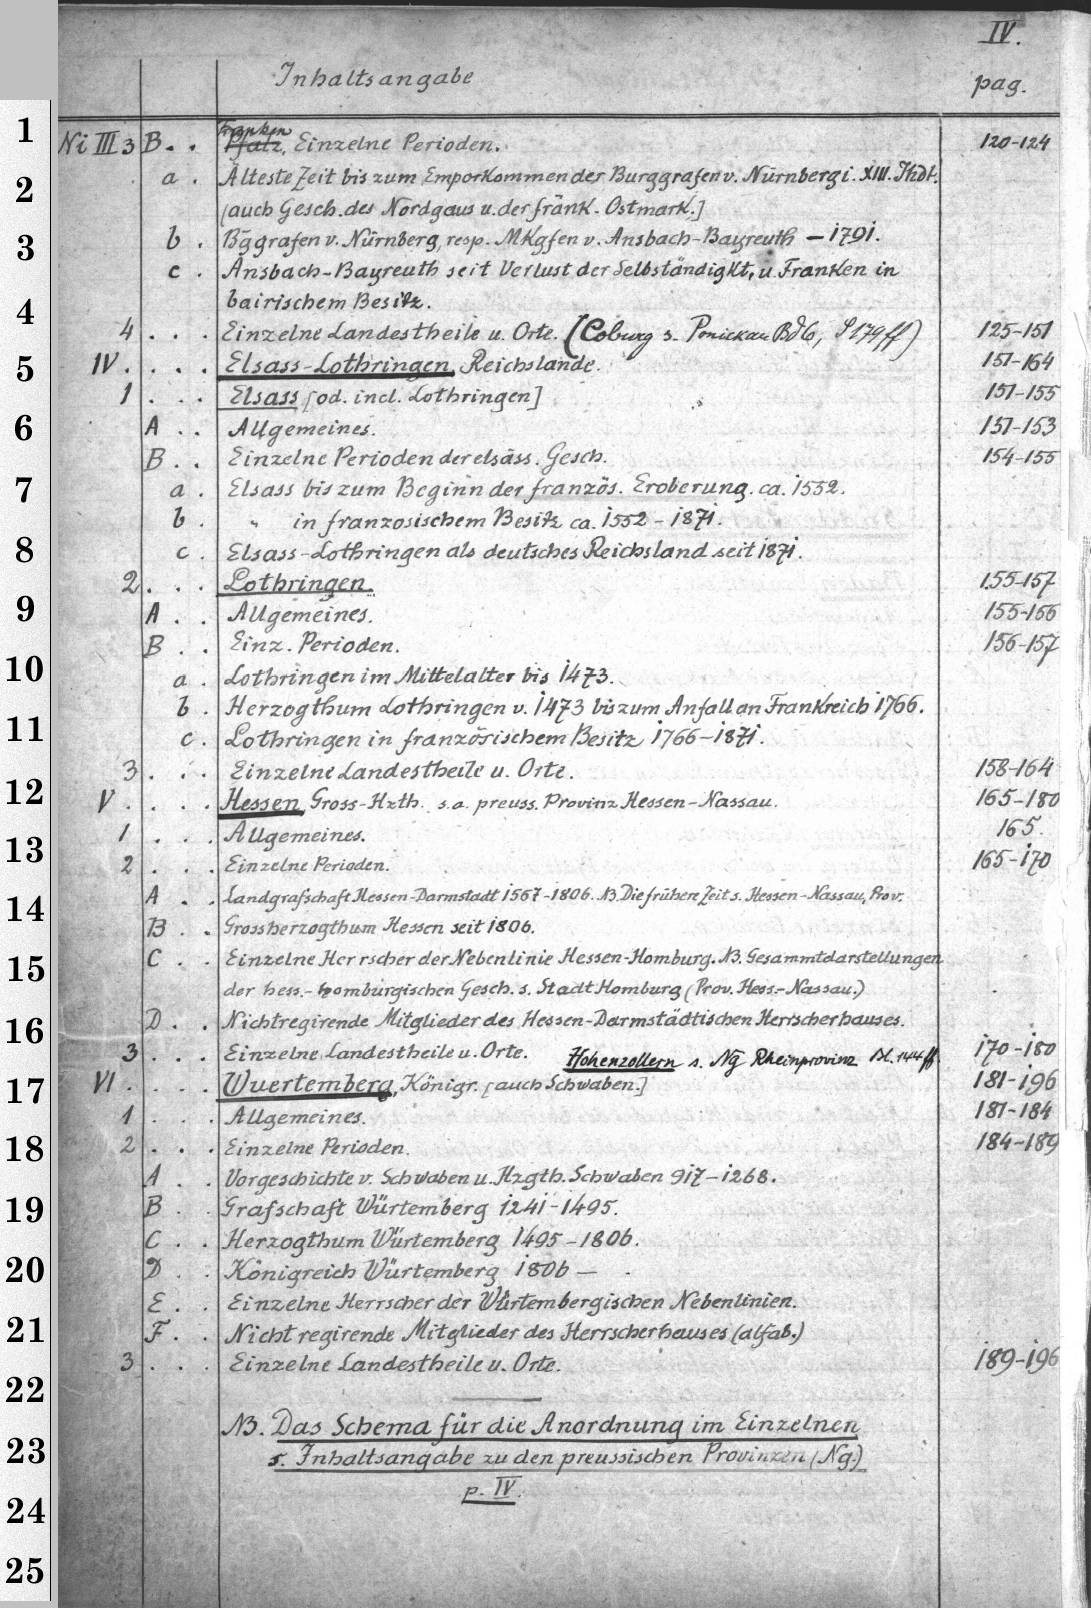 IV.
Inhaltsangabe pag.
1
Franken
Ni III 3 B. . Pfalz, Einzelne Perioden. 120-124
a . Älteste Zeit bis zum Emporkommen der Burggrafen v. Nürnberg i. XIII. Jhdt.
2
[auch Gesch. des Nordgaus u. der fränk. Ostmark.]
3
b . Bggrafen v. Nürnberg, resp. MKgfen v. Ansbach-Bayreuth – 1791.
c . Ansbach-Bayreuth seit Verlust der Selbständigkt, u. Franken in
bairischem Besitz.
4
4 . . . Einzelne Landestheile u. Orte. (Coburg s. Ponickau Bd 6, S 179 ff) 125-151
5
IV. . . . Elsass-Lothringen, Reichslande. 151-164
1 . . . Elsass [od. incl. Lothringen] 151-155
6
A . . Allgemeines. 151-153
B . . Einzelne Perioden der elsäss. Gesch. 154-155
7
a . Elsass bis zum Beginn der französ. Eroberung. ca. 1552.
b . " in franzosischem Besitz ca. 1552 - 1871.
8
c . Elsass-Lothringen als deutsches Reichsland seit 1871.
2 . . . Lothringen. 155-157
9
A . . Allgemeines. 155-156
B . . Einz. Perioden. 156-157
10
a . Lothringen im Mittelalter bis 1473.
b . Herzogthum Lothringen v. 1473 bis zum Anfall an Frankreich 1766.
11
c . Lothringen in französischem Besitz 1766-1871.
3 . . . Einzelne Landestheile u. Orte. 158-164
12
V . . . . Hessen, Gross-Hzth. s. a. preuss. Provinz Hessen-Nassau. 165-180
1 . . . Allgemeines. 165.
13
2 . . . Einzelne Perioden. 165-170
A . . Landgrafschaft Hessen-Darmstadt 1567-1806. NB. Die frühere Zeit s. Hessen-Nassau, Prov.
14
B . . Grossherzogthum Hessen seit 1806.
C . . Einzelne Herrscher der Nebenlinie Hessen-Homburg. NB. Gesammtdarstellungen
15
der hess.-homburgischen Gesch. s. Stadt Homburg (Prov. Hess.-Nassau.)
16
D . . Nichtregirende Mitglieder des Hessen-Darmstädtischen Herrscherhauses.
3 . . . Einzelne Landestheile u. Orte. Hohenzollern s. Ng Rheinprovinz Bl. 144 ff. 170-180
17
VI . . . . Wuertemberg, Königr. [auch Schwaben.] 181-196
1 . . . Allgemeines. 181-184
18
2 . . . Einzelne Perioden. 184-189
A . . Vorgeschichte v. Schwaben u. Hzgth. Schwaben 917-1268.
19
B . . Grafschaft Würtemberg 1241-1495.
C . . Herzogthum Würtemberg 1495-1806.
20
D . . Königreich Würtemberg 1806 –
E . . Einzelne Herrscher der Würtembergischen Nebenlinien.
21
F . . Nicht regirende Mitglieder des Herrscherhauses (alfab.)
3 . . . Einzelne Landestheile u. Orte. 189-196
22
NB. Das Schema für die Anordnung im Einzelnen
23
s. Inhaltsangabe zu den preussischen Provinzen (Ng.)
p. IV.
24
25